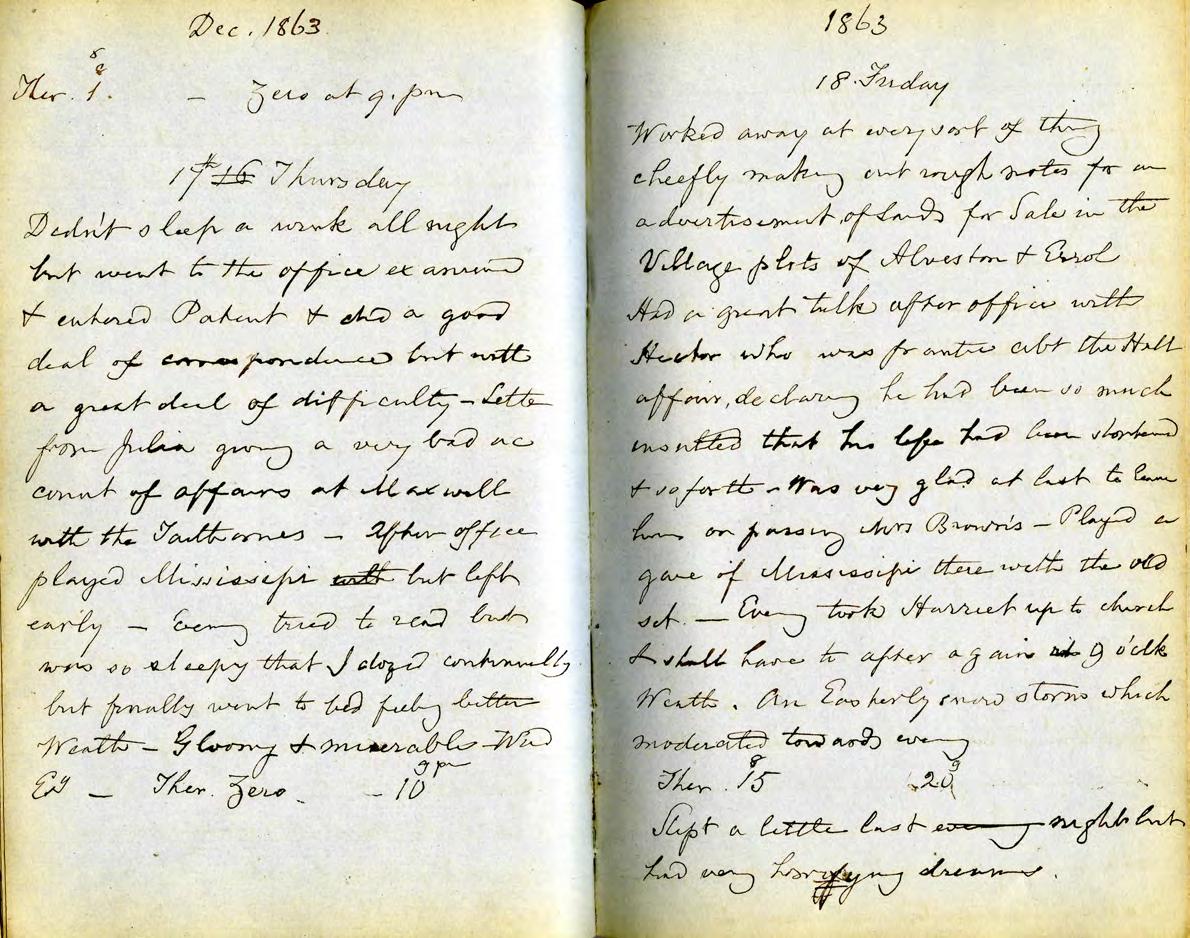 Dec. 1863.
8
Ther. 1. — Zero at 9. pm
17th 16 Thursday
Dedn't sleep a wink all night
but went to the office examined
& entered Patent & did a good
deal of correspondence but with
a great deal of difficulty – Letter
from Julia giving a very bad ac
count of affairs at Maxwell
with the Faithornes – After office
played Mississipi with but left
early – Eveng tried to read but
was so sleepy that I dozed continually
but finally went to bed feeling better
Weath – Gloomy & miserable – Wind
Ely – Ther. Zero. – 10 9 pm
1863
18 Friday
Worked away at every sort of thing
cheefly making out rough notes for an
advertisement of Lands for Sale in the
Village plots of Alveston & Errol
Had a great talk after office with
Hector who was frantic abt the Hall
affair, declaring he had been so much
insulted that his life had been shortened
& so forth – Was very glad at last to leave
him on passing Mrs Brown's – Played a
game of Mississipi there with the old
set. — Eveng took Harriet up to church
& shall have to after again at 9 o'clk
Weath. An Easterly snow storm which
moderated towards eveng
Ther. 8 15 9 20
Slept a little last evening night but
had very horryfying dreams.